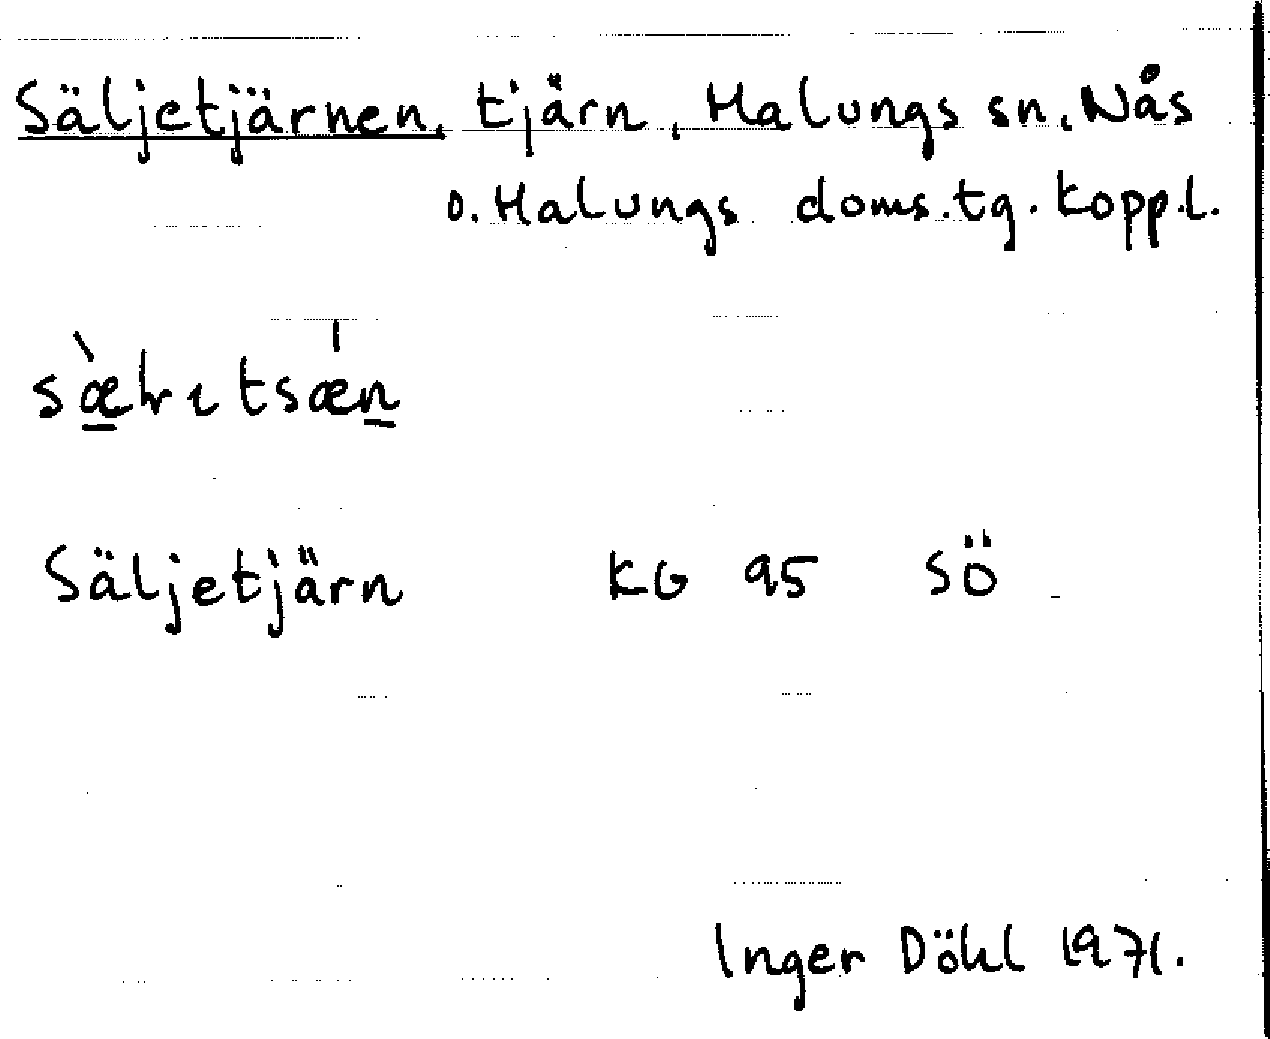 Säljetjärnen, tjärn, Malungs sn, Nås
o. Malungs doms.tg. Kopp.l.
Säljetjärn KG 95 SÖ
Inger Döhl 1971.